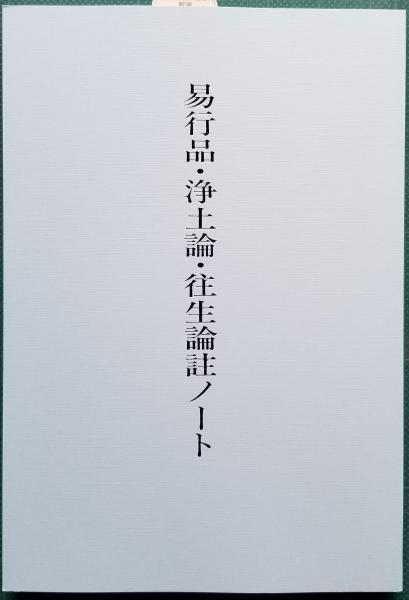 易行品・浄土論・往生論註ノート